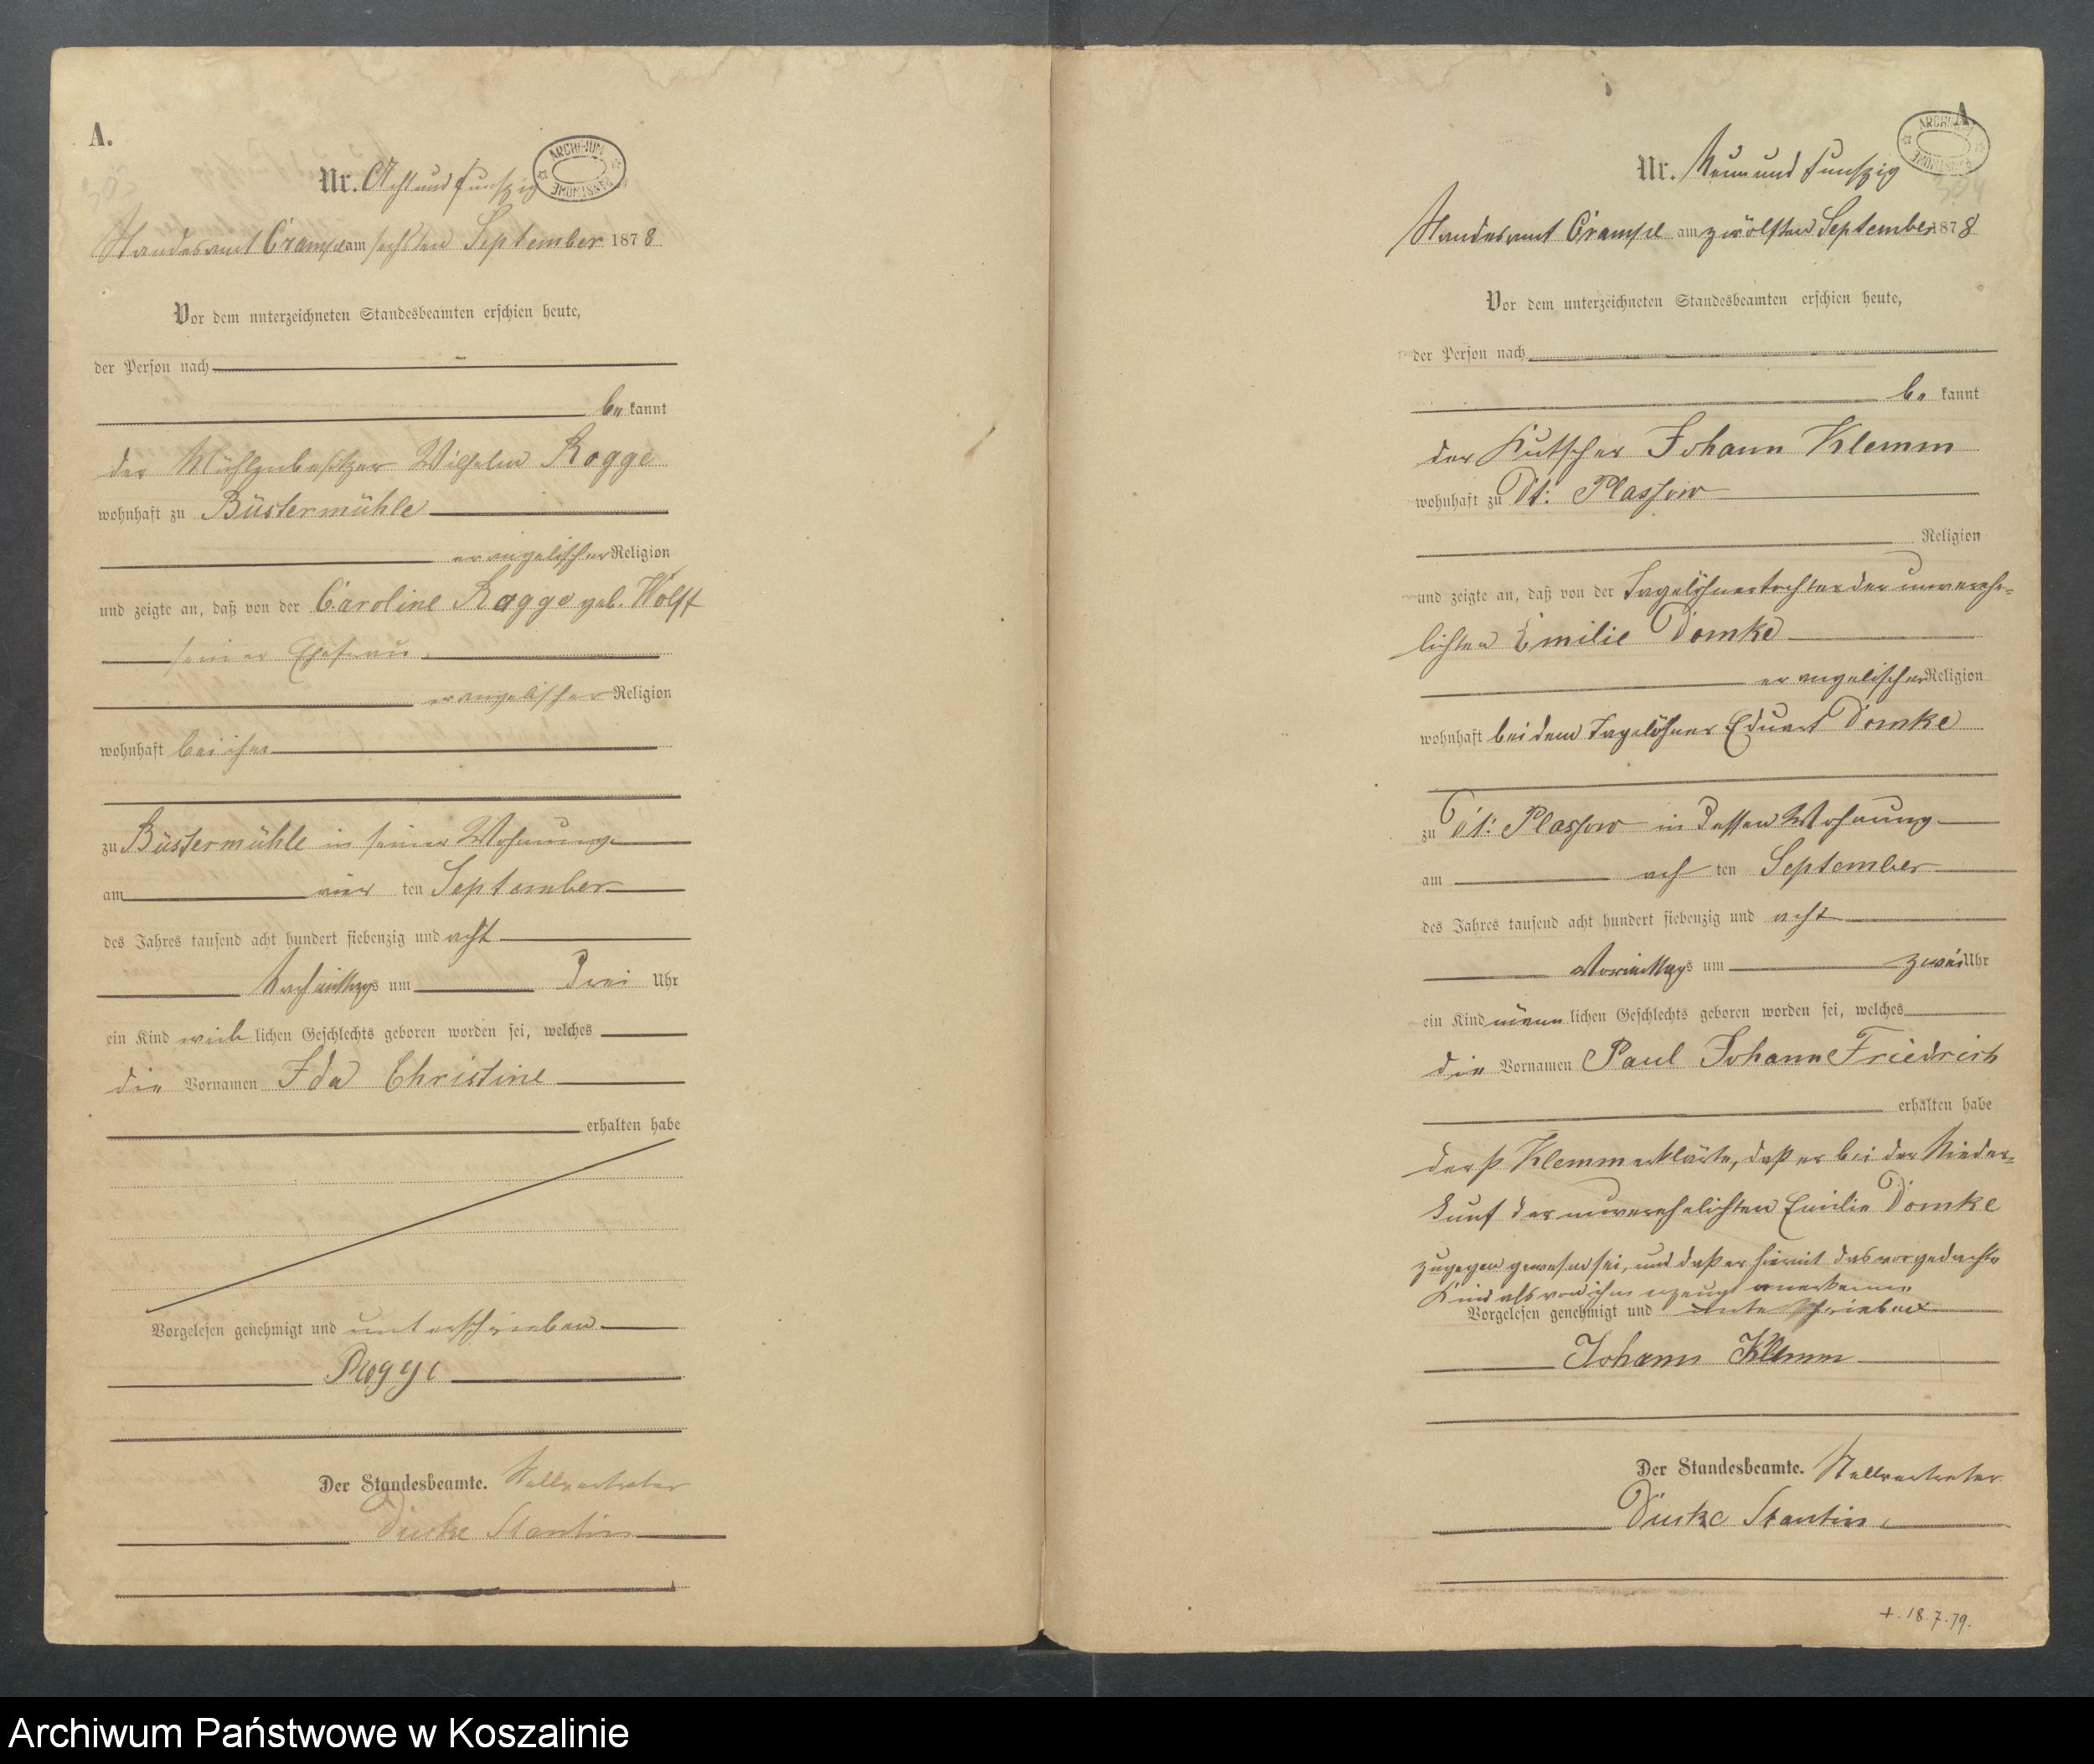 A.
Nr. Acht und funfzig
ARCHIWUM PAŃSTWOWE
Standesamt Crampe am sechsten September 1878
Vor dem unterzeichneten Standesbeamten erschien heute,
der Person nach
be kannt
der Mühlenbesitzer Wilhelm Rogge
wohnhaft zu Büstermühle
evangelischer Religion
und zeigte an, daß von der Caroline Rogge geb. Wolff
seiner Ehefrau
evangelischer Religion
wohnhaft bei ihm
zu Büstermühle in seiner Wohnung
am vier ten September
des Jahres tausend acht hundert siebenzig und acht
Nachmittags um drei Uhr
ein Kind weib lichen Geschlechts geboren worden sei, welches
die Vornamen Ida Christine
erhalten habe
Vorgelesen genehmigt und unterschrieben
Rogge
Der Standesbeamte. Stellvertreter
Stantin
A.
Nr. Neun und funfzig
ARCHIWUM PAŃSTWOWE
304
Standesamt Crampe am zwölften September 1878
Vor dem unterzeichneten Standesbeamten erschien heute,
der Person nach
be kannt
der Kutscher Johann Klemm
wohnhaft zu Dt: Plassow
Religion
und zeigte an, daß von der Tagelöhnertochter der unverehe-
lichten Emilie Domke
evangelischer Religion
wohnhaft bei dem Tagelöhner Eduart Domke
zu Dt: Plassow in dessen Wohnung
am ach ten September
des Jahres tausend acht hundert siebenzig und acht
Vormittags um zwei Uhr
ein Kind männ lichen Geschlechts geboren worden sei, welches
die Vornamen Paul Johann Friedrich
erhalten habe
Klemm erklärte, daß er bei der Nieder-
kunf der unverehelichten Emilie Domke
zugegen gewesen sei, und daß er hiermit das vorgedachte
Kind als von ihm erzeugt anerkenne
Vorgelesen genehmigt und unterschrieben
Johann Klemm
Der Standesbeamte. Stellvertreter
Stantin
+. 18.7.79.
Archiwum Państwowe w Koszalinie